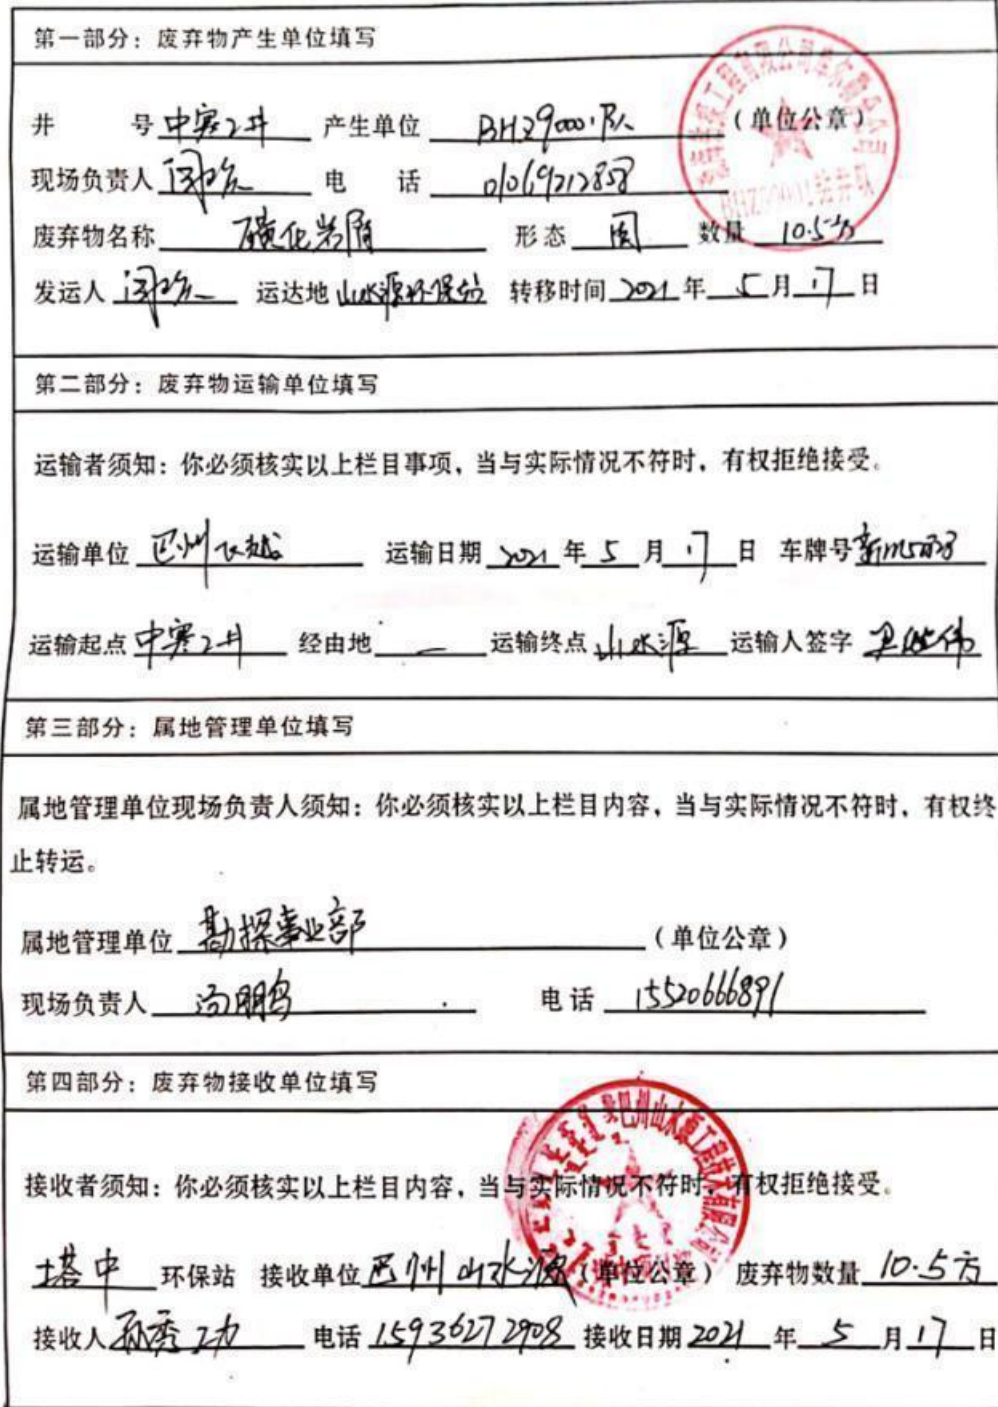 第一部分：废弃物产生单位填写
井 号 中寒2井 产生单位 BHZ9000 队 （单位公章）
现场负责人 电 话 01069212858
废弃物名称 磺化岩屑 形态 固 数量 10.5方
发运人 运达地 山水源环保站 转移时间 2021 年 5 月 17 日
第二部分：废弃物运输单位填写
运输者须知：你必须核实以上栏目事项，当与实际情况不符时，有权拒绝接受。
运输单位 巴州 运输日期 2021 年 5 月 17 日 车牌号
运输起点 中寒2井 经由地 — 运输终点 山水源 运输人签字
第三部分：属地管理单位填写
属地管理单位现场负责人须知：你必须核实以上栏目内容，当与实际情况不符时，有权终
止转运。
属地管理单位 勘探事业部 （单位公章）
现场负责人 电话 15520666891
第四部分：废弃物接收单位填写
接收者须知：你必须核实以上栏目内容，当与实际情况不符时，有权拒绝接受。
塔中 环保站 接收单位 巴州山水源 （单位公章） 废弃物数量 10.5方
接收人 孙秀功 电话 15936272908 接收日期 2021 年 5 月 17 日